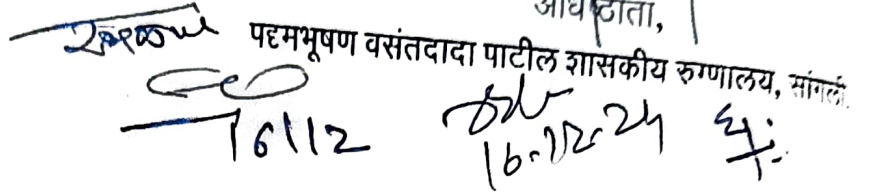 अधिष्ठाता,
पद्मभूषण वसंतदादा पाटील शासकीय रुग्णालय, सांगली.
16/12 16-12-24